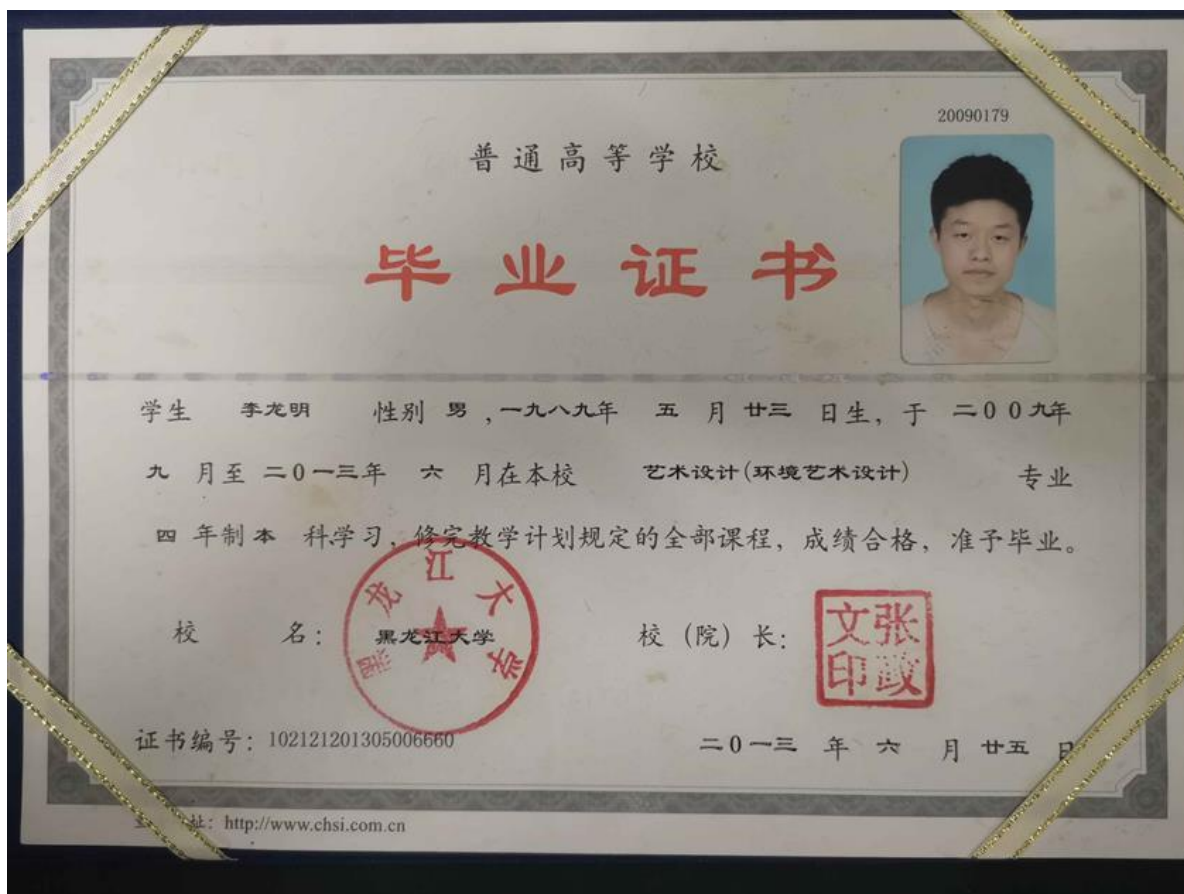 20090179
普通高等学校
毕业证书
学生 李龙明 性别 男 ,一九八九年 五 月 廿三 日生, 于 二00九年
九 月至 二0一三年 六 月在本校 艺术设计(环境艺术设计) 专业
四 年制 本 科学习, 修完教学计划规定的全部课程, 成绩合格, 准予毕业。
黑龙江大学
校 名: 黑龙江大学 校 (院) 长: 张政文印
证书编号: 102121201305006660 二0一三 年 六 月 廿五 日
址: http://www.chsi.com.cn